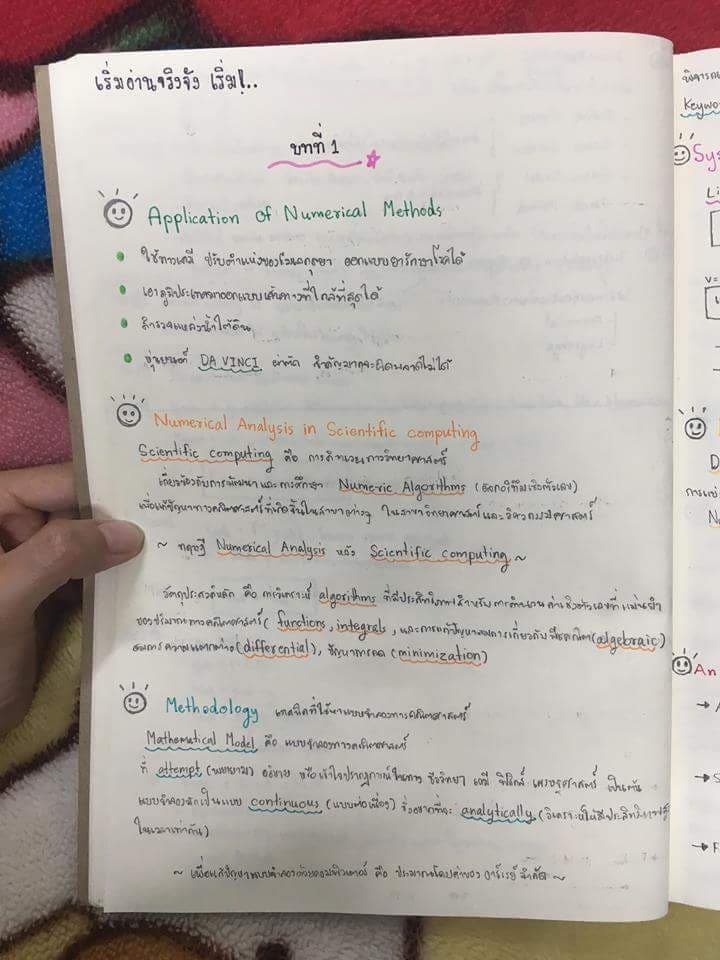 เริ่มอ่านจริงจัง เริ่ม!..
บทที่ 1
Application of Numerical Methods
ใช้ทางเคมี ปรับตำแหน่งของโมเลกุลยา ออกแบบยารักษาโรคได้
เอาภูมิประเทศมาออกแบบเส้นทางที่ใกล้ที่สุดได้
สำรวจแหล่งน้ำใต้ดิน
หุ่นยนต์ DA VINCI ผ่าตัด สำคัญมากจะผิดพลาดไม่ได้
Numerical Analysis in Scientific computing
Scientific computing คือ การคำนวณทางวิทยาศาสตร์
เกี่ยวข้องกับการพัฒนาและการศึกษา Numeric Algorithms (อัลกอริทึมเชิงตัวเลข)
เพื่อแก้ปัญหาทางคณิตศาสตร์ที่เกิดขึ้นในสาขาต่างๆ ในสาขาวิทยาศาสตร์และวิศวกรรมศาสตร์
~ ทฤษฎี Numerical Analysis หลัง Scientific computing ~
วัตถุประสงค์หลัก คือ การวิเคราะห์ algorithms ที่มีประสิทธิภาพสำหรับการคำนวณค่าเชิงตัวเลขที่แม่นยำ
ของปริมาณทางคณิตศาสตร์ ( functions, integrals, และการแก้ปัญหาสมการเกี่ยวกับพีชคณิต(algebraic)
สมการความแตกต่าง(differential), ปัญหาการลด (minimization)
Methodology เทคนิคที่ใช้หาแบบจำลองทางคณิตศาสตร์
Mathematical Model คือ แบบจำลองทางคณิตศาสตร์
ที่ attempt (พยายาม) อธิบาย หรือเข้าใจปรากฏการณ์ในทาง ชีววิทยา เคมี ฟิสิกส์ เศรษฐศาสตร์ เป็นต้น
แบบจำลองมักเป็นแบบ continuous (แบบต่อเนื่อง) ซึ่งยากที่จะ analytically (วิเคราะห์ให้มีประสิทธิภาพ
ในเวลาเท่ากัน)
~ เพื่อแก้ปัญหาแบบจำลองด้วยคอมพิวเตอร์ คือ ประมาณโดยค่าของ อาร์เรย์ จำกัด ~
พิจารณ
Keywo
Sys
Li
V =
D
การแข่
N
An